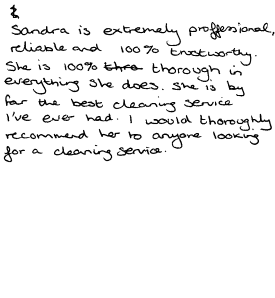 Sandra is extremely proffessional,
reliable and 100% trustworthy.
She is 100% thro thorough in
everything she does. She is by
far the best cleaning service
I've ever had. I would thoroughly
recommend her to anyone looking
for a cleaning service.